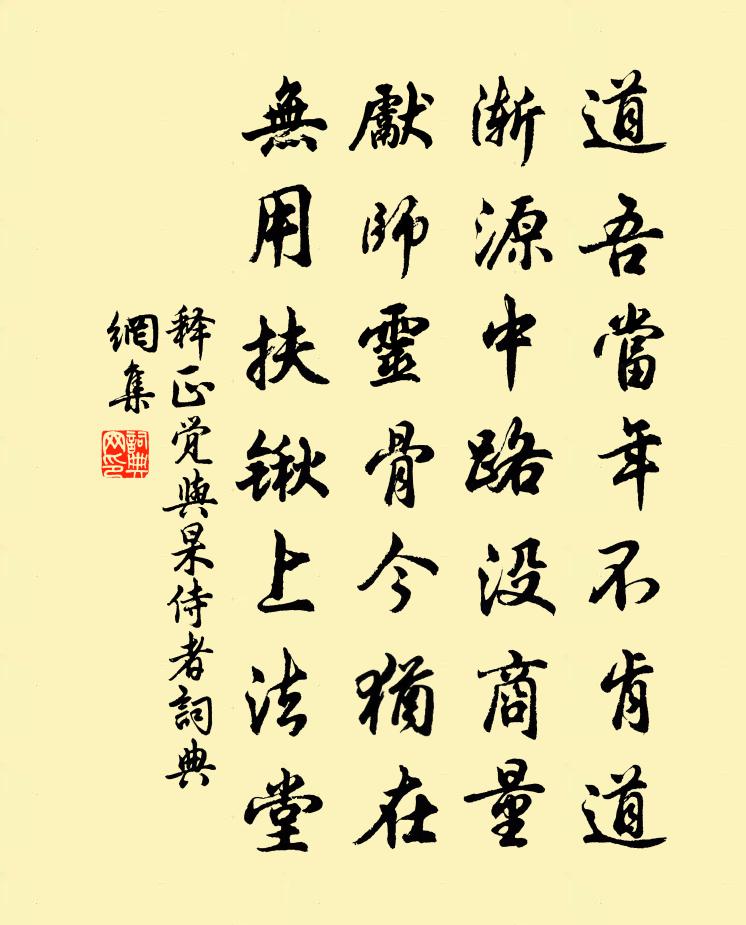 道吾當年不肯道
漸源中路没商量
獻師靈骨今猶在
無用扶鍬上法堂
释正覚與杲侍者詞典
網集
詞典網印